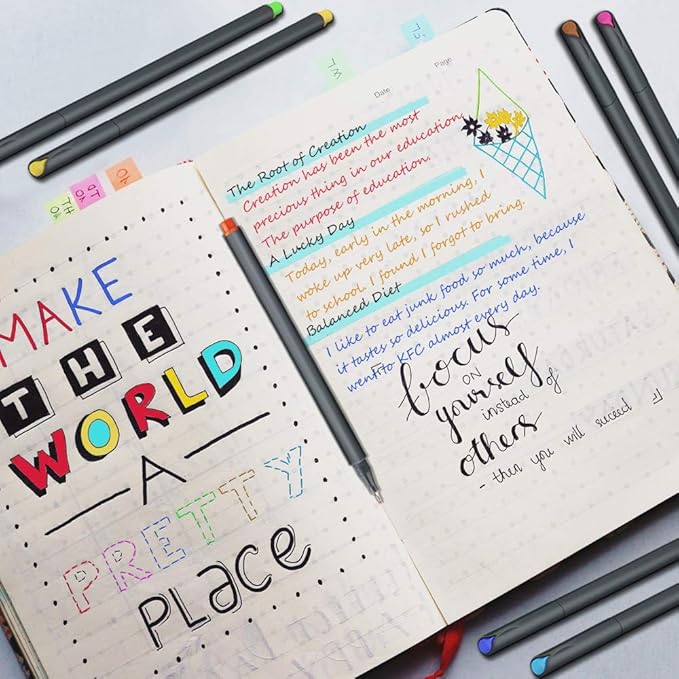 MAKE
THE
WORLD
A
PRETTY
PLACE
Date Page
The Root of Creation
Creation has been the most
precious thing in our education
The purpose of education.
A Lucky Day
Today, early in the morning, I
woke up very late, so I rushed
to school. I found I forgot to bring.
Balanced Diet
I like to eat junk food so much, because
it tastes so delicious. For some time, I
went to KFC almost every day.
focus
on
yourself
instead of
others
- then you will suceed